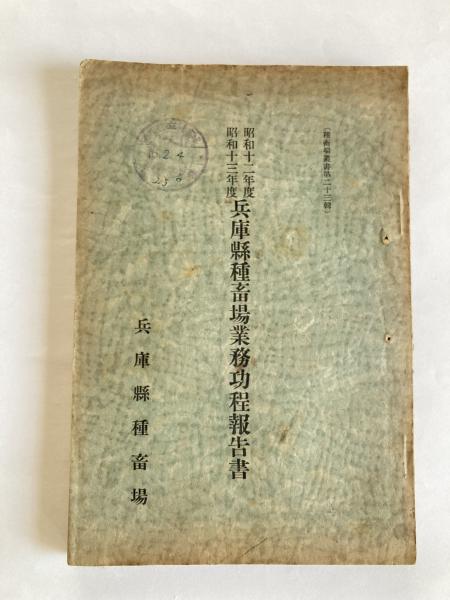 (種畜場叢書第二十三輯)
昭和十二年度
昭和十三年度
兵庫縣種畜場業務功程報告書
兵庫縣種畜場
2.4